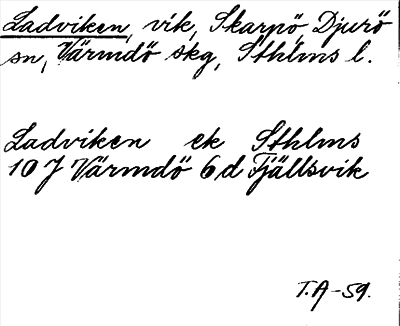 Ladviken, vik, Skarpö, Djurö
sn, Värmdö skg, Sthlms l.
Ladviken ek Sthlms
10 J Värmdö 6 d Fjällsvik
T.A-59.